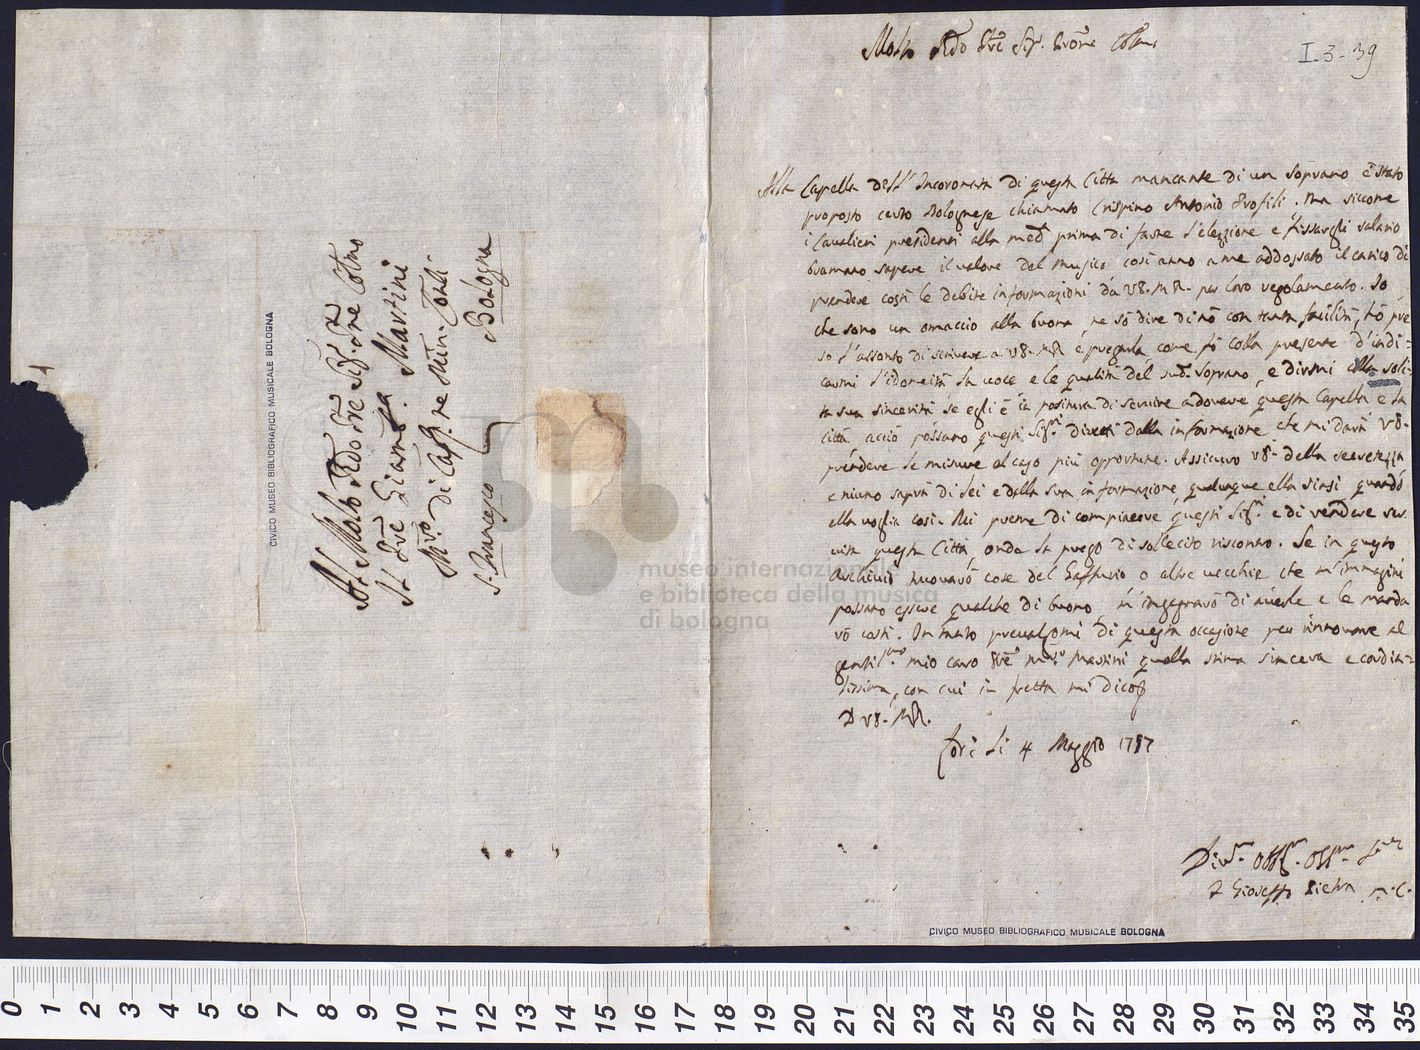 Molto Rdo Pre Sigr. Prone Colmo
I-3-39
Alla Capella dell'Incoronata di questa Città mancante di un soprano è stato
proposto certo Bolognese chiamato Crispino Antonio Profili. Ma siccome
i Cavalieri presidenti alla med. prima di farne l'elezzione e fissargli salario
bramano sapere il valore del Musico così anno a me addossato il carico di
prendere costì le debite informazioni da V.S. M.R. per loro regolamento. Io
che sono un omaccio alla buona, ne sò dire di nò con tanta facilità, hò pre
so l'assonto di scrivere a V.S. M.R. e pregarla, come fò colla presente d'indi=
carmi l'idoneità la voce e le qualità del sud. soprano, e dirmi colla soli-
ta sua sincerità se egli è in positura di servire a dovere questa Capella e la
Città acciò possano questi Sigri diretti dalla informazione che mi darà V.S.
prendere le misure al caso più opportune. Assicuro V.S. della secretezza
e niuno saprà di lei e della sua informazione qualunque ella siasi quando
ella voglia così. Mi preme di compiacere questi Sigri e di rendere ser
vita questa Città, onde la prego di sollecito riscontro. Se in questo
Archivio trovarò cose del Gaffurio o altre vecchie che m'immagini
possano essere qualche di buono, m'ingegnarò di averle e le manda
rò costì. In tanto prevalgomi di questa occasione per rinnovare al
gentilmo mio caro Pre Mro Martini quella stima sincera e cordia=
lissima, con cui in fretta mi dico
D V.S. M.R.
Lodi li 4 Maggio 1757
Giuseppe
Al Molto Rdo Pre Sigr. Pne Colmo
Il Pre Giambta Martini
Mro di Capla ne Min: Conli
S. Francesco
Bologna
CIVICO MUSEO BIBLIOGRAFICO MUSICALE BOLOGNA
CIVICO MUSEO BIBLIOGRAFICO MUSICALE BOLOGNA
museo internazionale
e biblioteca della musica
di bologna
0 1 2 3 4 5 6 7 8 9 10 11 12 13 14 15 16 17 18 19 20 21 22 23 24 25 26 27 28 29 30 31 32 33 34 35